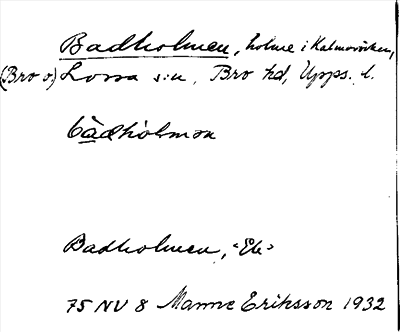 Badholmen, holme i Kalmarviken,
(Bro o.) Lossa s:n, Bro hd, Upps. l.
bàdhòlmən
Badholmen, "Ek"
75 NV 8 Manne Eriksson 1932